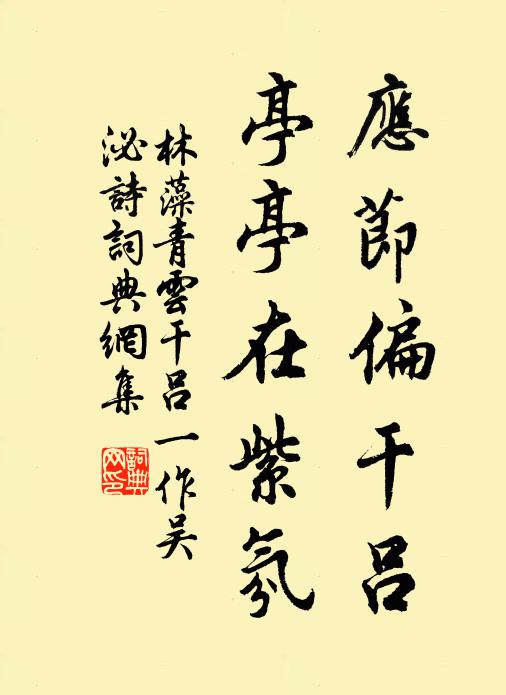 應節偏干呂
亭亭在紫氛
林藻青雲干呂一作吴
泌詩詞典網集
詞典
网印